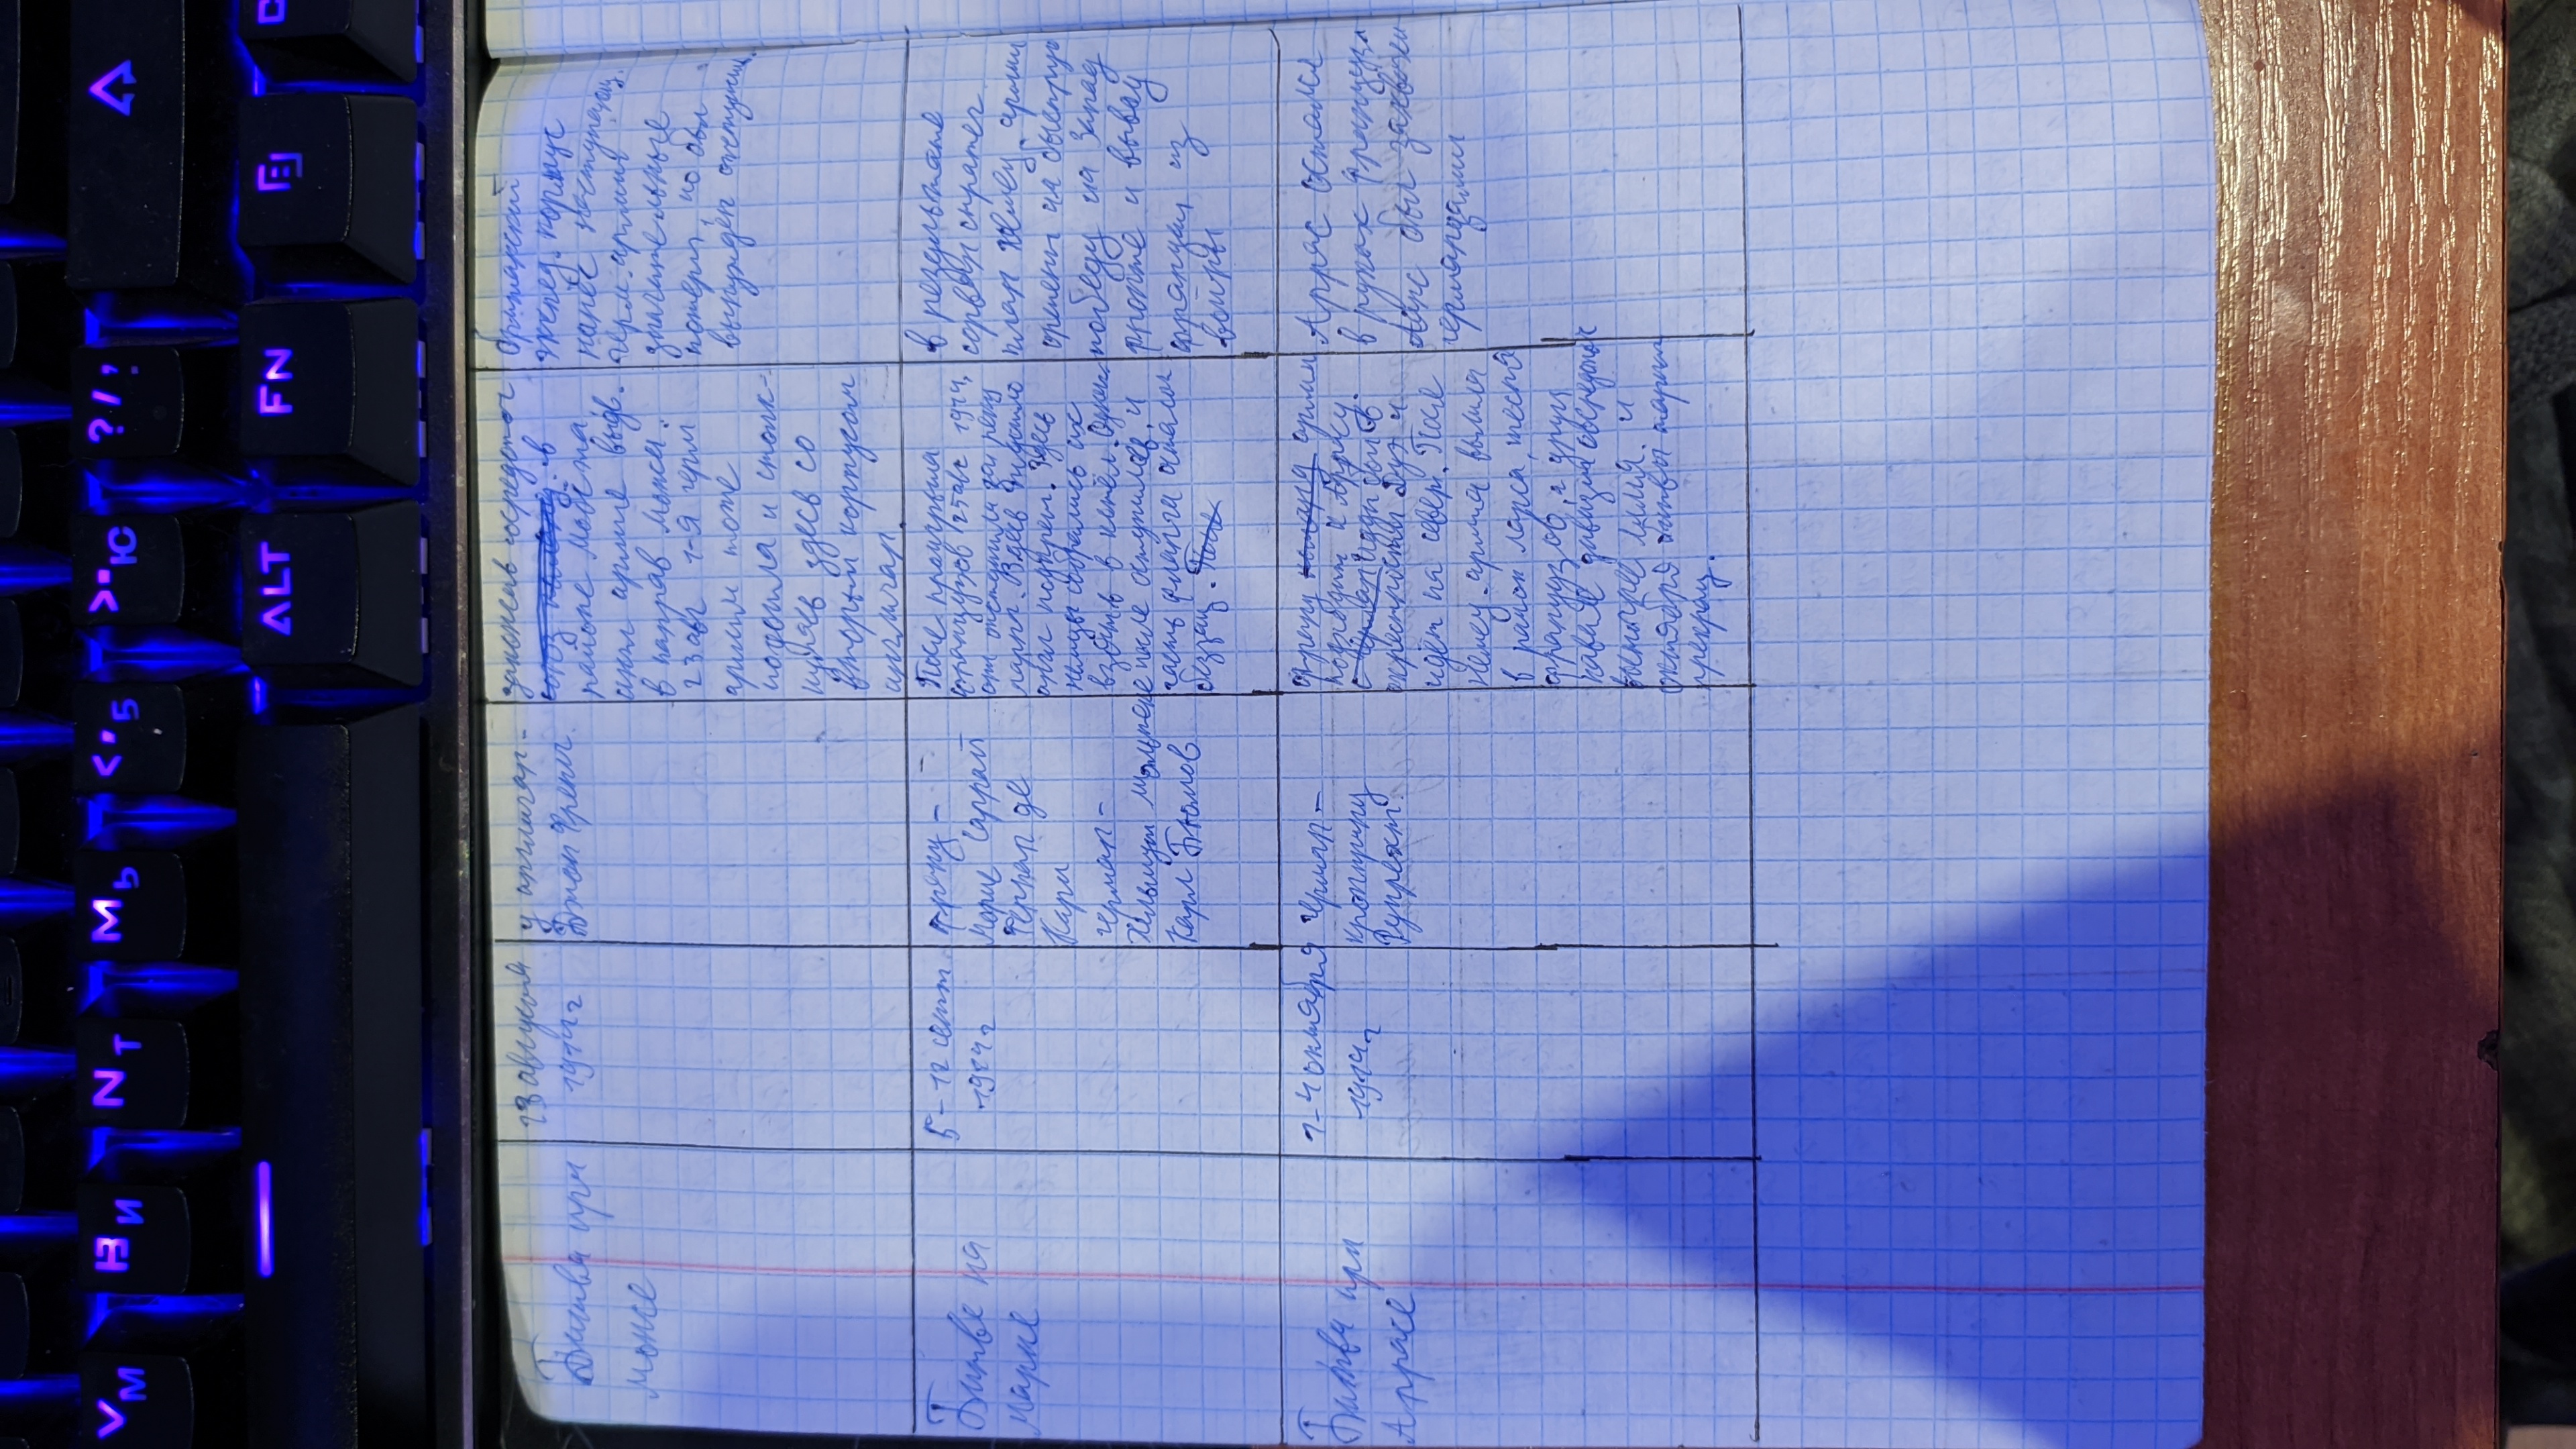 V М
B И
N Т
M Ь
< , Б
> . Ю
? / ; .
ALT
FN
Битва при
Монсе
23 августа
1914 г
у англичан -
Джон Френч.
закончив сосредоточ
в
районе Мобёжа,
англ армие выдв.
в направ Монса.
23 авг 1-я герм
армии тоже
подошла и столк-
нулась здесь со
вторым корпусом
англичан.
британский
экспед. корпус
нанёс наступающ.
герм. армии
значительные
потери, но был
вынужден отступить.
Битве на
Марне
5-12 сент
1914 г
франц -
Морис Саррай
Фернан де
Кари
герман -
Хельмут Мольтке
Карл Бюлов
После проигрыша
французов 25 авг 1914,
они отступили за реку
Марна. Здесь подошло
англ подкреп. Здесь
немцы собрались их
взять в котёл. Однак
после оступилов, и
часть фланга осталось
беззащ. После
в результате
сорван стратег
план немец. армии
на быструю
победу на Запад
фронте и вывод
франции из
войны
Битва при
Аррасе
1-4 октября
1914 г
герман -
кронпринц
Рупрехт.
франц команд армии
подходит к Аррасу.
бой в
окрестности Дуэ и
идёт на север. После
немец. армия вышла
в район Ланса,
французов, а друг
кавале дивизия сосредоточ
восточнее Лилля. 4
октября битвы
прекращ.
Аррас остался
в руках француз
Ланс был захвачен
германцами